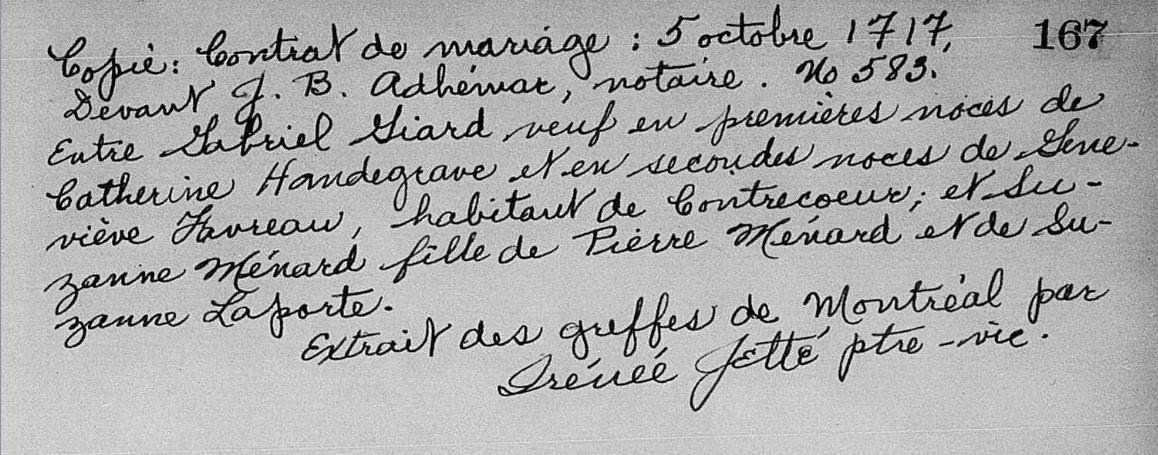 Copié: Contrat de mariage : 5 octobre 1717, 167
Devant J. B. Adhémar, notaire. No 583.
Entre Gabriel Giard veuf en premières noces de
Catherine Handegrave et en secondes noces de Gene-
viève Favreau, habitant de Contrecoeur; et Su-
zanne Ménard fille de Pierre Ménard et de Su-
zanne Laporte.
Extrait des greffes de Montréal par
Irénée Jetté ptre-vic.